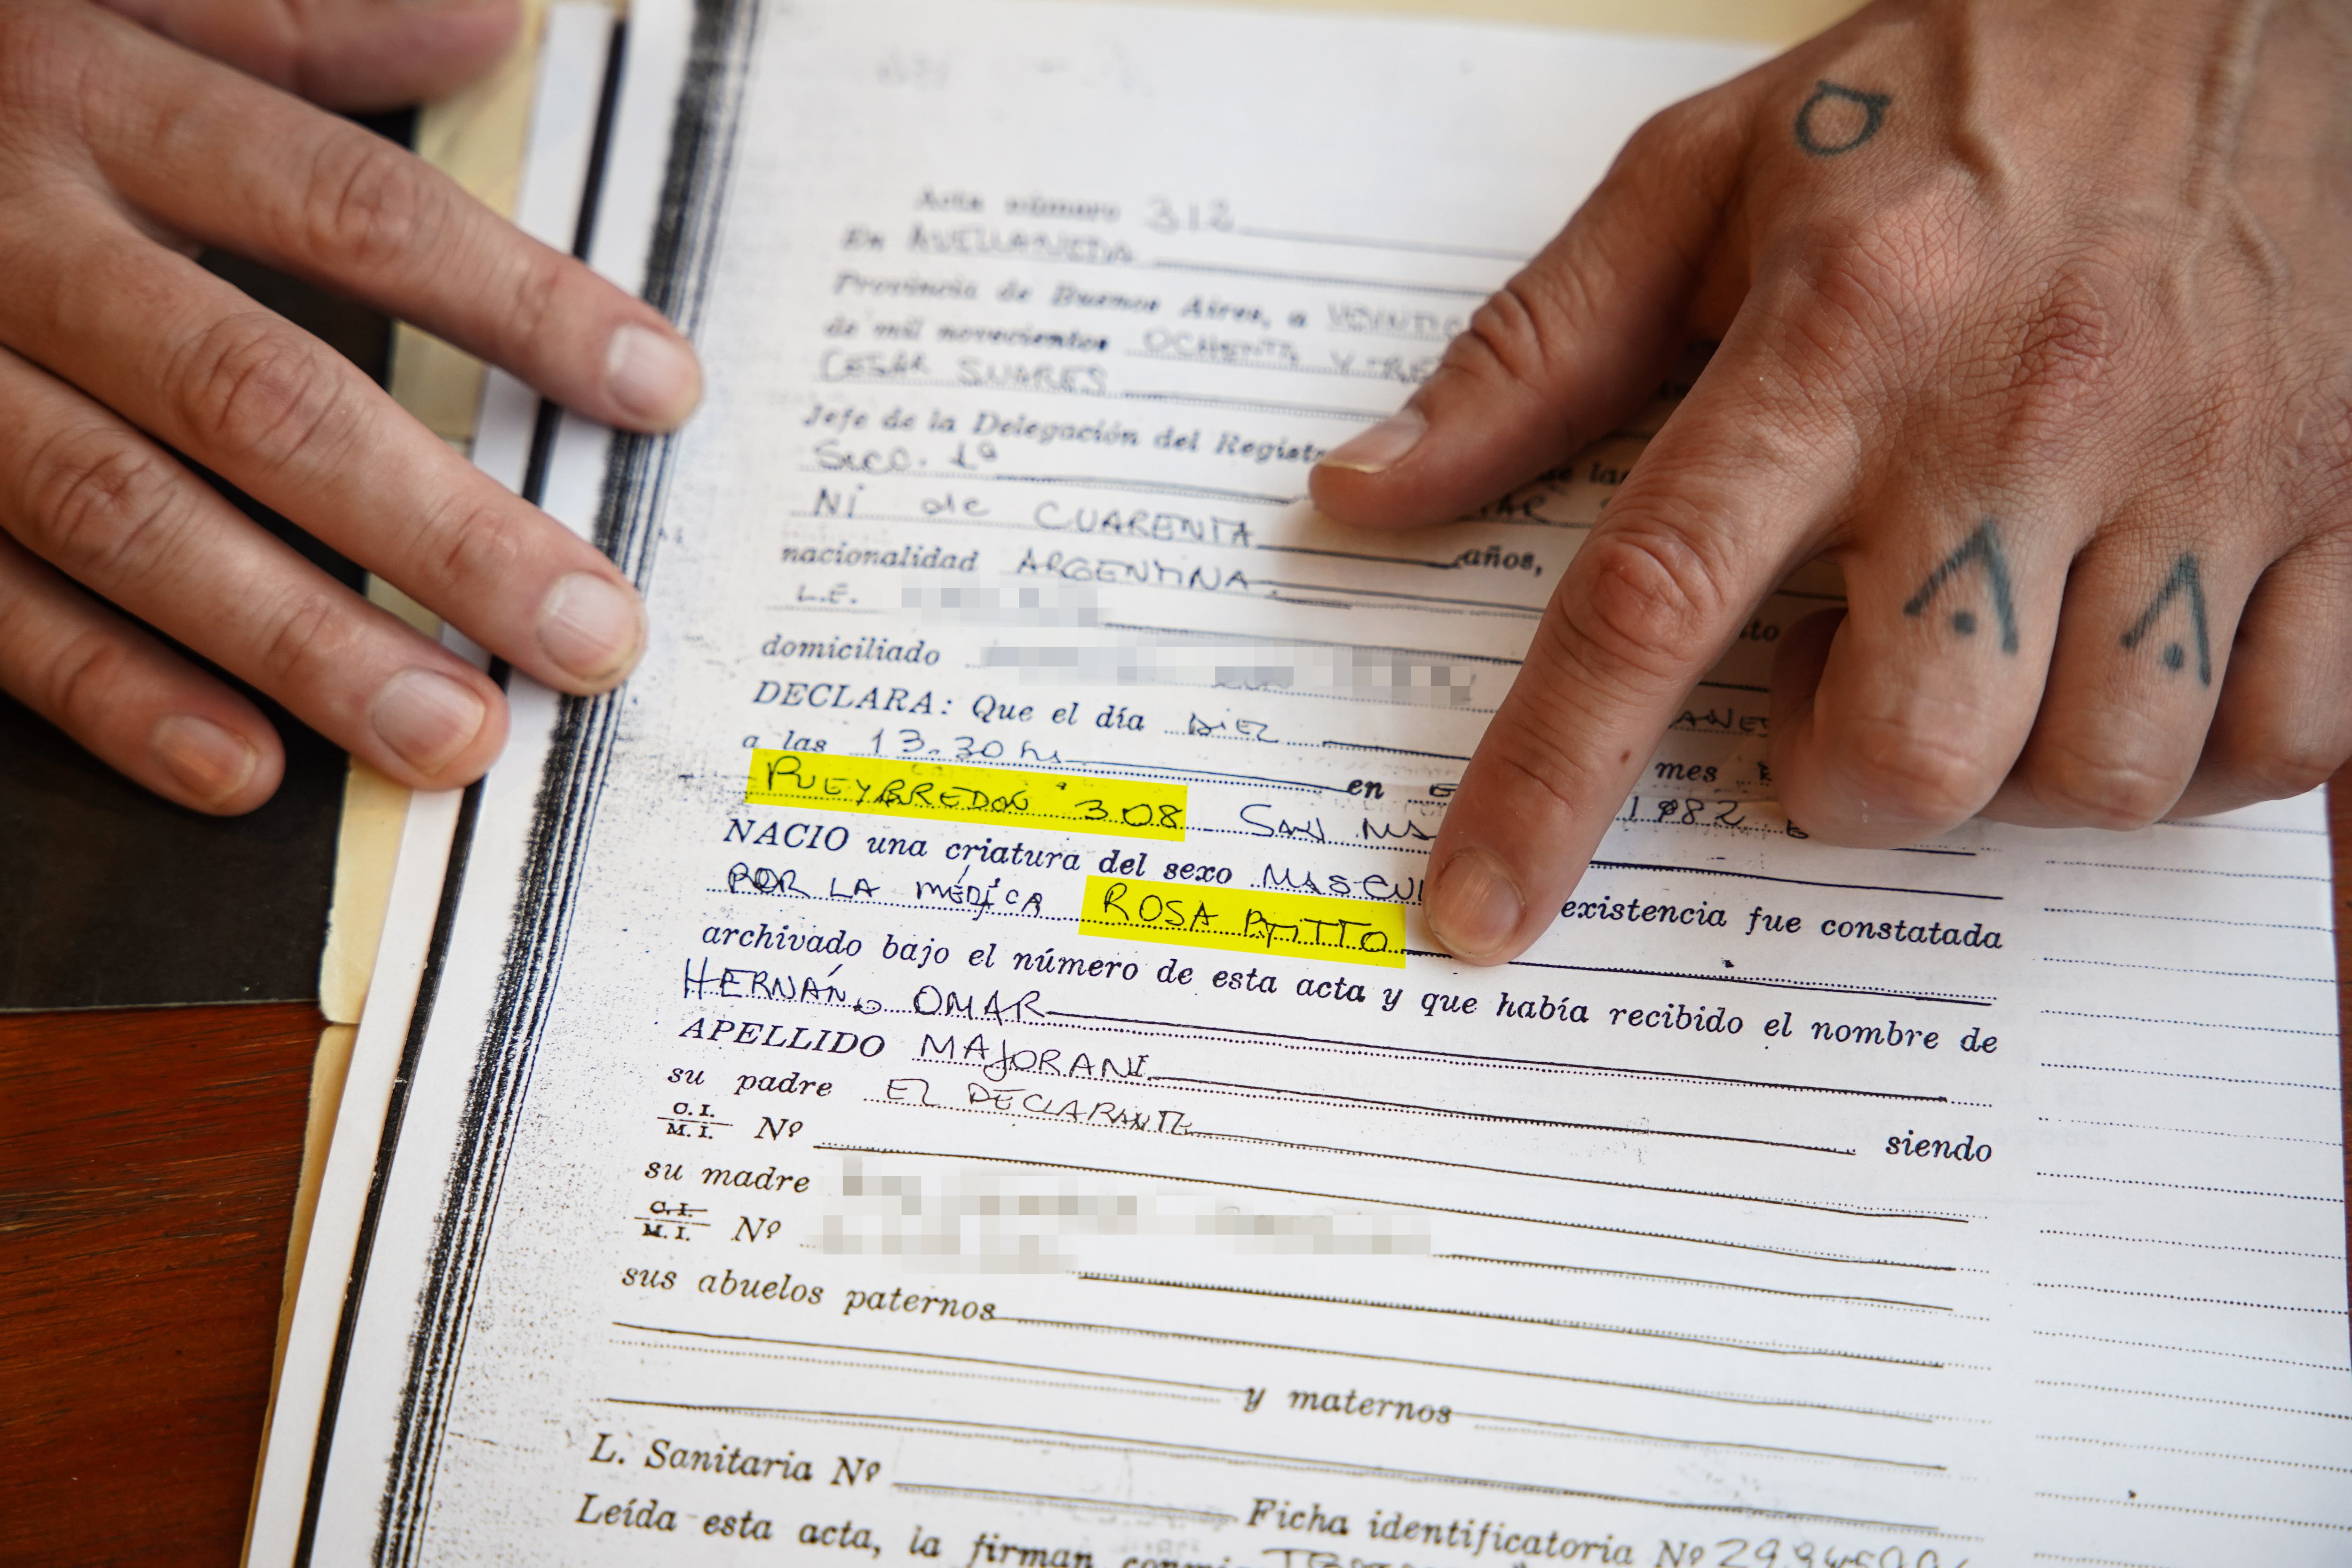 Acta número 312
En AVELLANEDA
Provincia de Buenos Aires, a
de mil novecientos OCHENTA Y TRES
CESAR SUARES
Jefe de la Delegación del Registro
Secc. 1ª
NI de CUARENTA años,
nacionalidad ARGENTINA
L.E.
domiciliado
DECLARA: Que el día DIEZ mes
a las 13.30 hs en
PUEYRREDON 308 SAN 1982
NACIO una criatura del sexo MASCULI existencia fue constatada
POR LA MÉDICA ROSA
archivado bajo el número de esta acta y que había recibido el nombre de
HERNÁN OMAR
APELLIDO MAJORANI
su padre EL DECLARANTE siendo
C.I.
M.I. Nº
su madre
C.I.
M.I. Nº
sus abuelos paternos
y maternos
L. Sanitaria Nº Ficha identificatoria Nº
Leída esta acta, la firman